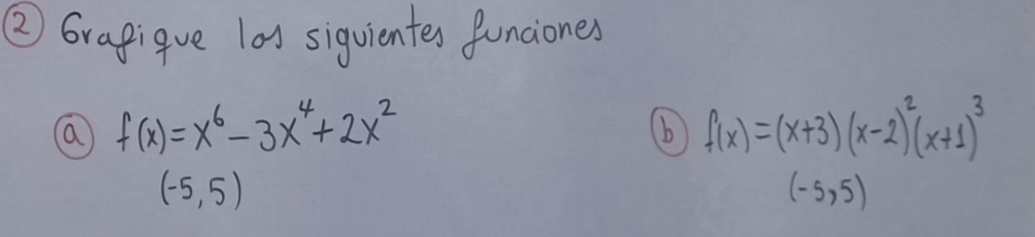 ② Grafique las siguientes funciones
ⓐ f(x)=x⁶-3x⁴+2x²
(-5,5)
ⓑ f(x)=(x+3)(x-2)²(x+1)³
(-5,5)